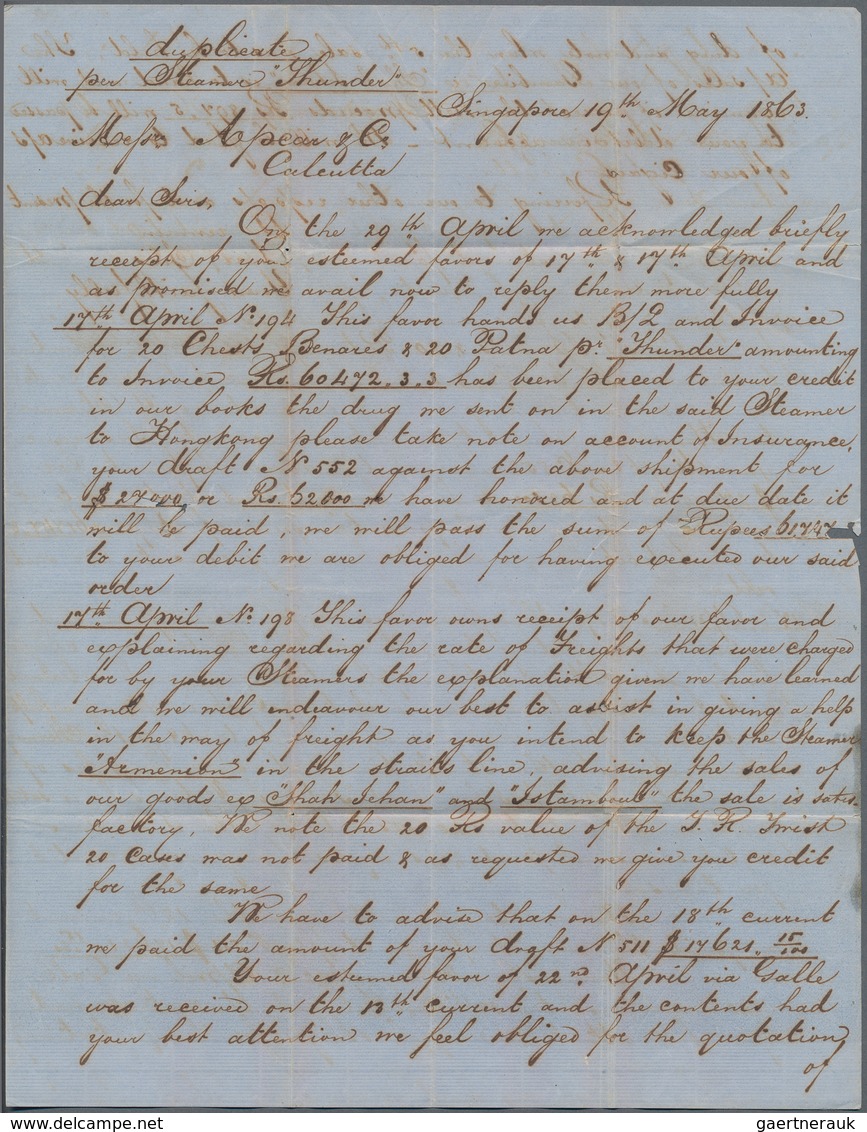 duplicate
per Steamer "Thunder"
Singapore 19th May 1863.
Messrs Apcar & Co
Calcutta
dear Sirs,
On the 29th April we acknowledged briefly
receipt of your esteemed favors of 17th & 17th April and
as promised we avail now to reply them more fully
17th April No 194 This favor hands us B/L and Invoice
for 20 Chests Benares & 20 Patna pr "Thunder" amounting
to Invoice Rs. 60472.3.3 has been placed to your credit
in our books the drug we sent on in the said Steamer
to Hongkong please take note on account of Insurance,
your draft N 552 against the above shipment for
$ 27000 or Rs. 62000 we have honored and at due date it
will be paid, we will pass the sum of Rupees 61747
to your debit we are obliged for having executed our said
order
17th April No 198 This favor owns receipt of our favor and
explaining regarding the rate of Freights that were charged
for by your Steamers the explanation given we have learned
and we will endeavour our best to assist in giving a help
in the way of freight as you intend to keep the Steamer
"Armenion" in the straits line, advising the sales of
our goods ex "Shah Jehan" and "Istamboul" the sale is satis-
factory. We note the 20 Rs value of the T. R. Twist
20 Cases was not paid & as requested we give you credit
for the same
We have to advise that on the 18th current
we paid the amount of your draft N 511 $ 17621. 15/100
Your esteemed favor of 22nd April via Galle
was received on the 13th current and the contents had
your best attention we feel obliged for the quotation
of
gaertnerauk / www.delcampe.net